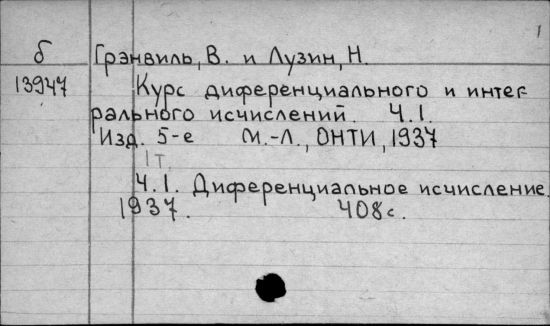 1
б Грэнвиль, В. и Лузин, Н.
13947 Курс диференциального и интег-
рального исчислений. Ч.1.
Изд. 5-е М.-Л., ОНТИ, 1937
1т.
Ч.1. Диференциальное исчисление.
1937. 408с.